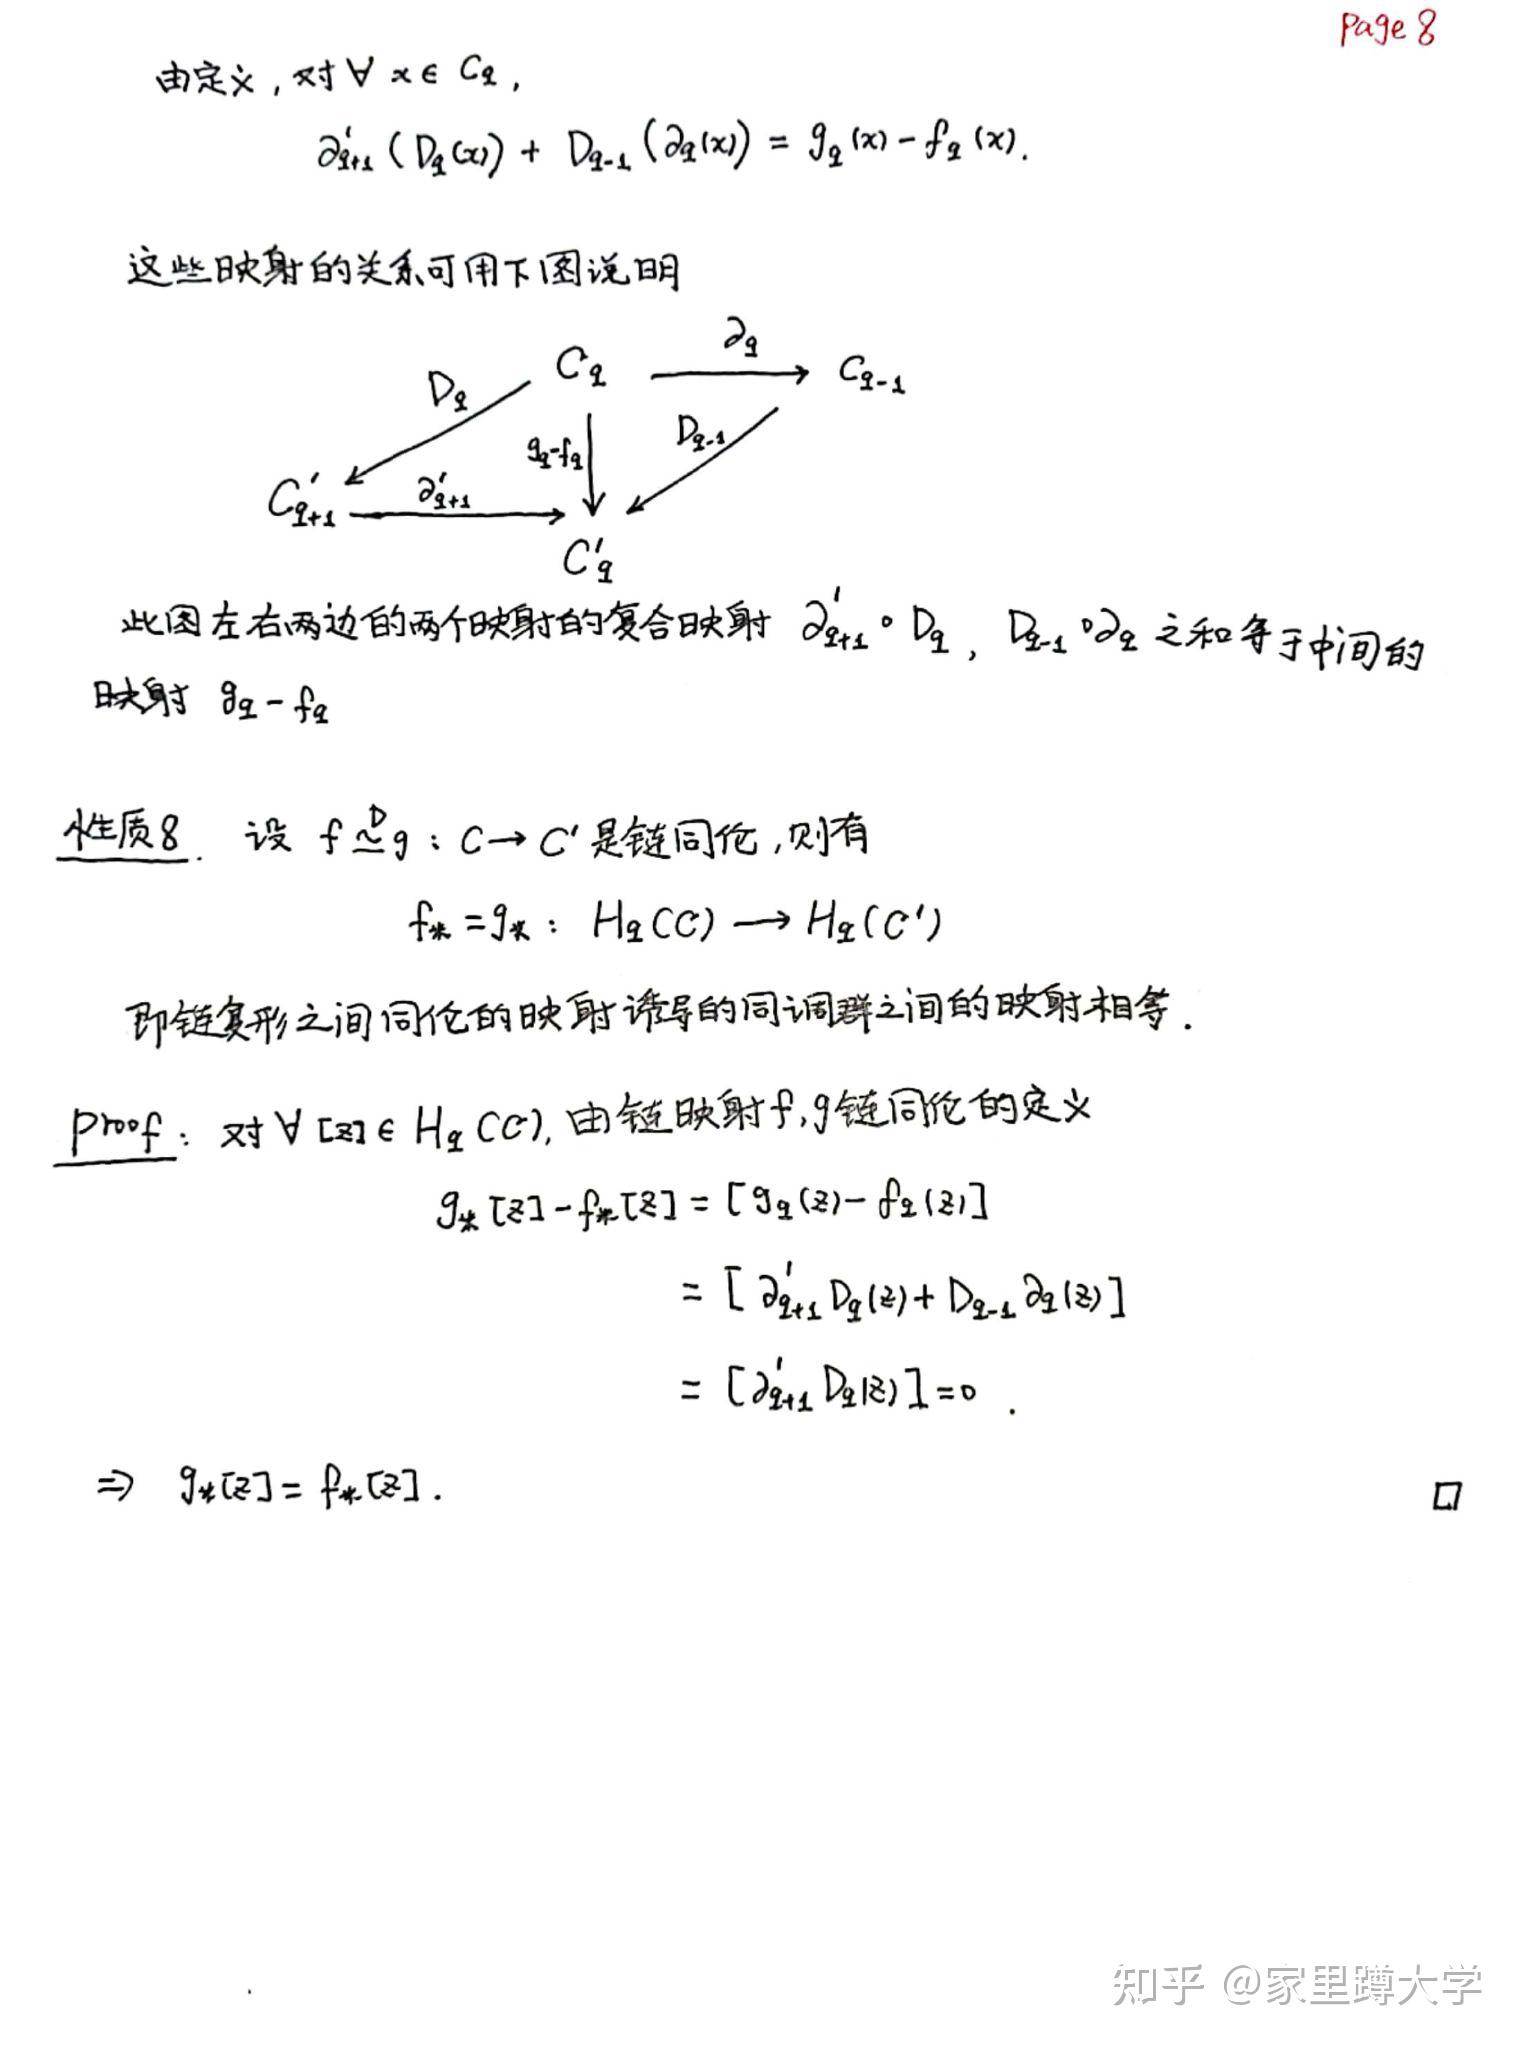 Page 8
由定义，对∀ x ∈ C_q，
∂'_{q+1} (D_q(x)) + D_{q-1} (∂_q(x)) = g_q(x) - f_q(x).
这些映射的关系可用下图说明
∂_q
D_q C_q C_{q-1}
g_q-f_q D_{q-1}
C'_{q+1} ∂'_{q+1}
C'_q
此图左右两边的两个映射的复合映射 ∂'_{q+1} ∘ D_q，D_{q-1} ∘ ∂_q 之和等于中间的
映射 g_q - f_q
性质8. 设 f ≃^D g : C → C' 是链同伦，则有
f_* = g_* : H_q(C) → H_q(C')
即链复形之间同伦的映射诱导的同调群之间的映射相等.
Proof: 对∀ [z] ∈ H_q(C), 由链映射f, g链同伦的定义
g_*[z] - f_*[z] = [g_q(z) - f_q(z)]
= [∂'_{q+1} D_q(z) + D_{q-1} ∂_q(z)]
= [∂'_{q+1} D_q(z)] = 0 .
⇒ g_*[z] = f_*[z]. □
知乎 @家里蹲大学